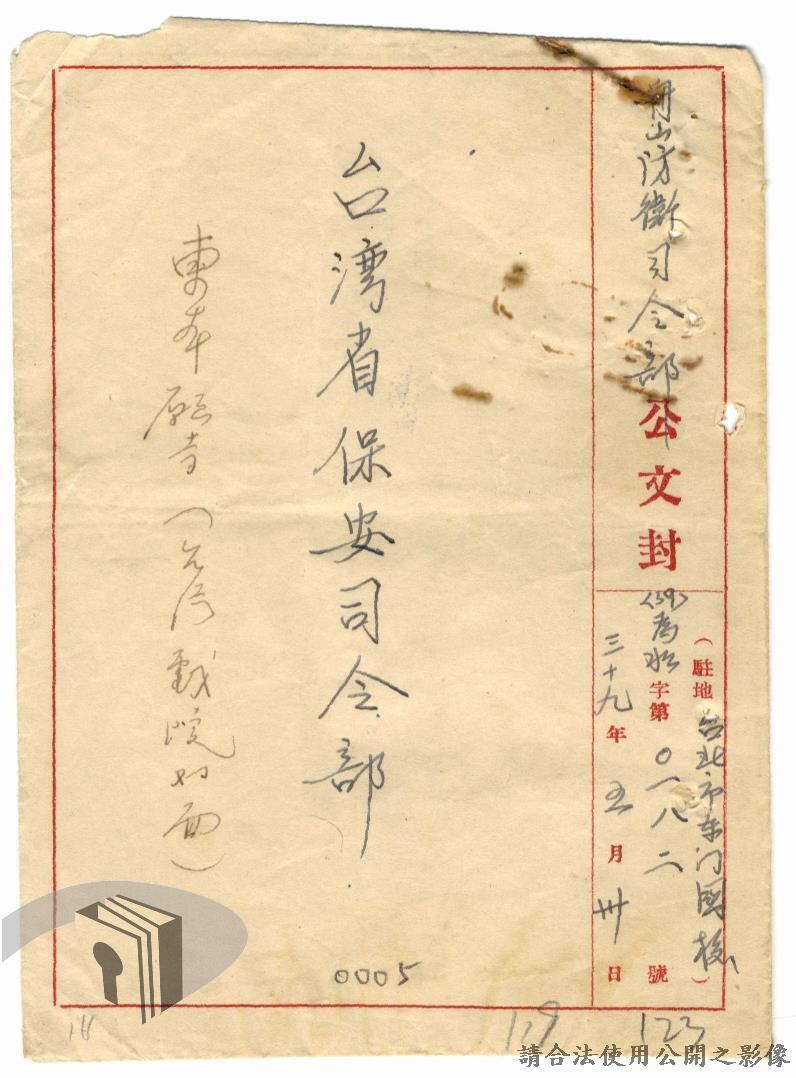 舟山防衛司令部公文封
(駐地台北市东门國校)
(39)為松字第〇一八二號
三十九年五月卅日
台湾省保安司令部
東本願寺(台湾戲院対面)
0005
18
119
123
請合法使用公開之影像